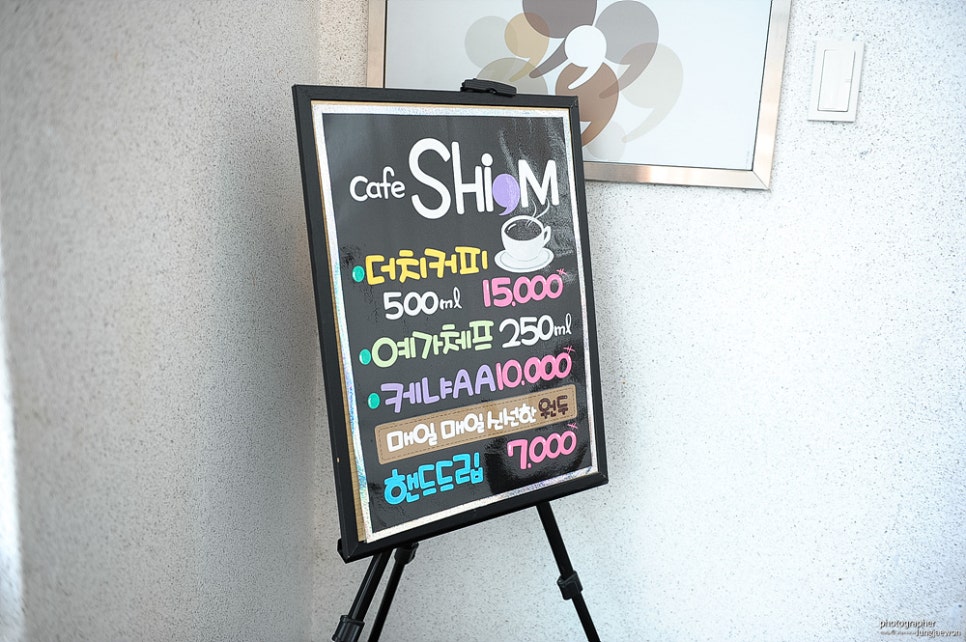 Cafe SHi,M
더치커피
500ml 15.000
예가체프 250ml
케냐AA 10.000
매일 매일 신선한 원두
핸드드립 7.000
photographer
Jungjaewon